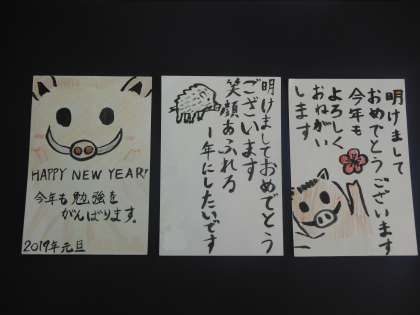 HAPPY NEW YEAR!
今年も勉強を
がんばります。
2019年元旦
明けましておめでとう
ございます
笑顔あふれる
1年にしたいです
明けまして
おめでとうございます
今年も
よろしく
おねがい
します